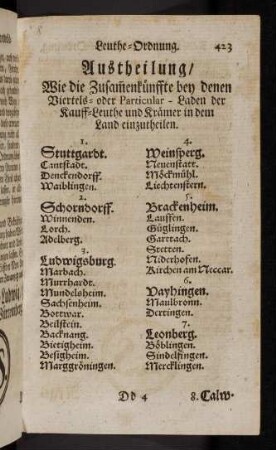 Leuthe-Ordnung. 423
Austheilung/
Wie die Zusamenkünffte bey denen
Viertels- oder Particular-Laden der
Kauff-Leuthe und Krämer in dem
Land einzutheilen.
1.
Stuttgardt.
Cantstadt.
Denckendorff.
Waiblingen.
2.
Schorndorff.
Winnenden.
Lorch.
Adelberg.
3.
Ludwigsburg.
Marbach.
Murrhardt.
Mundelsheim.
Sachsenheim.
Bottwar.
Beilstein.
Backnang.
Bietigheim.
Besigheim.
Marggröningen.
4.
Weinsperg.
Neuenstatt.
Möckmühl.
Liechtenstern.
5.
Brackenheim.
Lauffen.
Güglingen.
Gartach.
Stetten.
Niderhofen.
Kirchen am Neccar.
6.
Vayhingen.
Maulbronn.
Dertingen.
7.
Leonberg.
Böblingen.
Sindelfingen.
Mercklingen.
Dd 4 8. Calw.